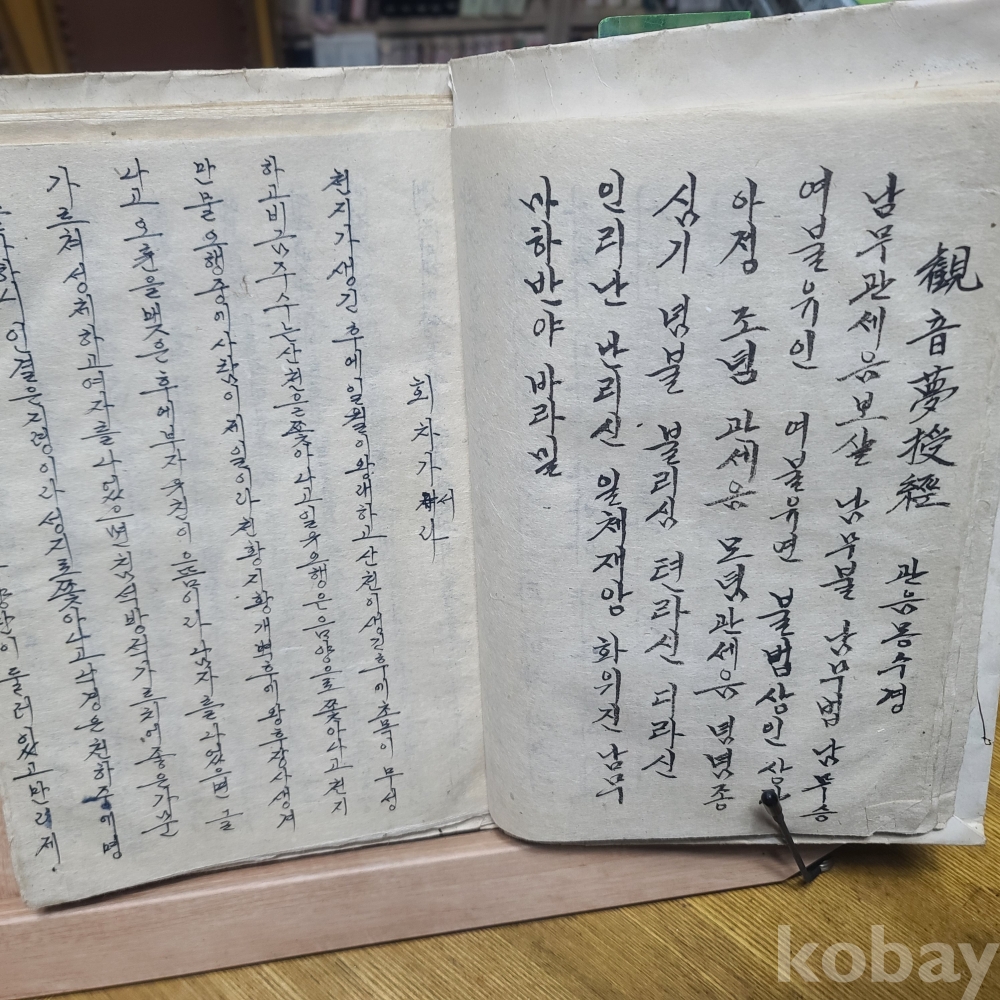 觀音夢授經 관음몽수경
남무관세음보살 남무불 남무법 남무승
여불유인 여불유연 불법상인 상
아정 조념 관세음 모념관세음 념념종
심기 념불 불리심 텬라신 디라신
인리난 난리신 일체재앙 화위진 남무
마하반야 바라밀
회차가라서
천지가 생긴 후에 일월이 왕래하고 산천이 생긴후에 초목이 무성
하고 비금주수는 산천으로 쫓아나고 일우음행은 음양으로 쫓아나고 천지
만물 오행중에 사람이 제일이라 천황지황 개벽후에 왕후장사 생겨
나고 오륜을 벳은 후에 부자유친이 으뜸이라 남자를 나었으면 글
가르쳐 성취하고 여자를 나었으면 침선방적 가르치에 좋은가문
인걸은 지령이라 성지로 쫓아나고 남경은 천하중에 명
둘러있고 만리제
kobay